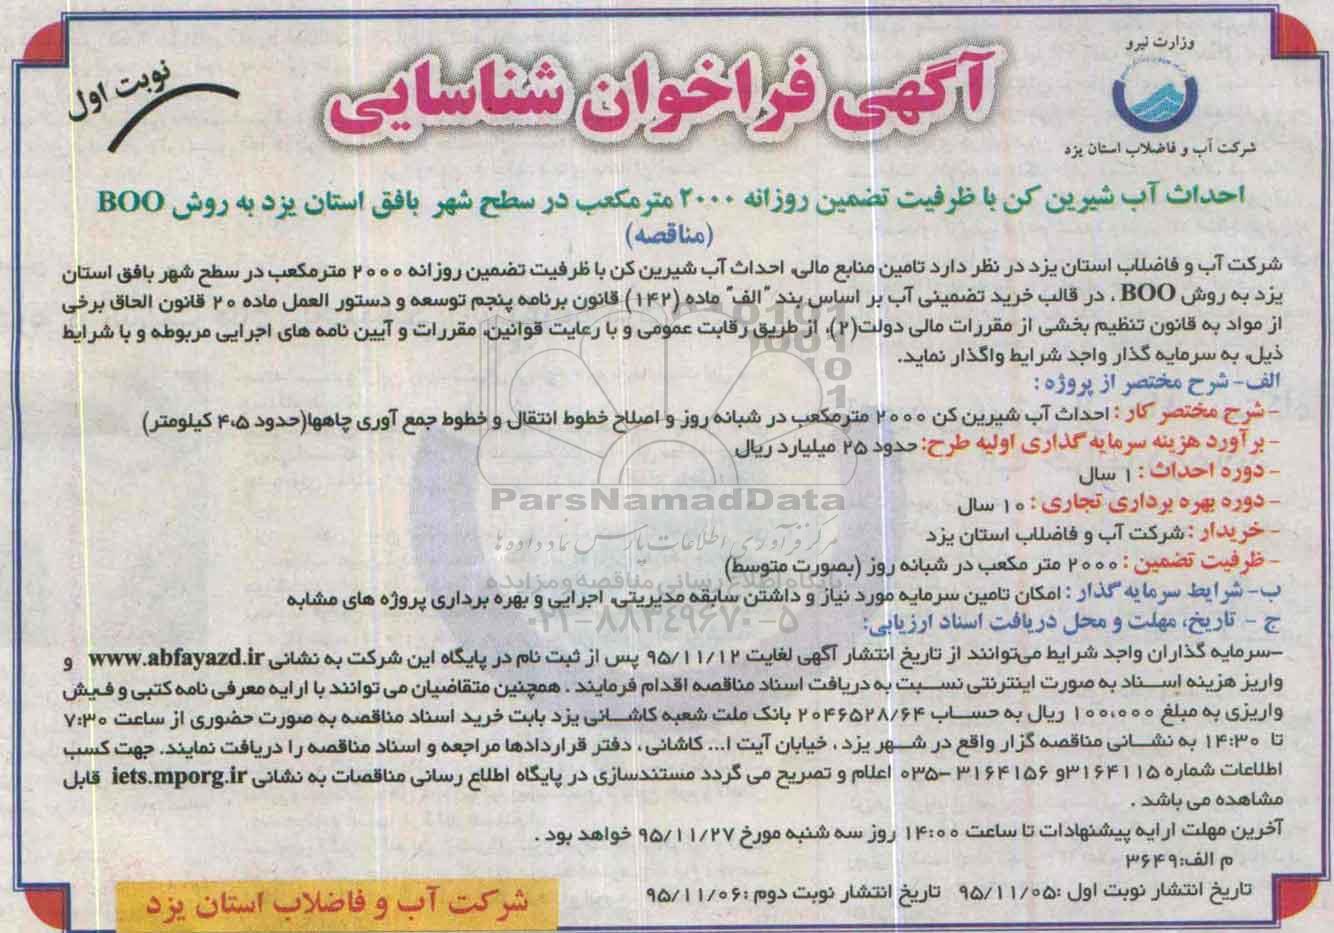 وزارت نیرو
شرکت آب و فاضلاب استان یزد
نوبت اول
آگهی فراخوان شناسایی
احداث آب شیرین کن با ظرفیت تضمین روزانه ۲۰۰۰ مترمکعب در سطح شهر بافق استان یزد به روش BOO
(مناقصه)
شرکت آب و فاضلاب استان یزد در نظر دارد تامین منابع مالی، احداث آب شیرین کن با ظرفیت تضمین روزانه ۲۰۰۰ مترمکعب در سطح شهر بافق استان
یزد به روش BOO ، در قالب خرید تضمینی آب بر اساس بند "الف" ماده (۱۴۲) قانون برنامه پنجم توسعه و دستور العمل ماده ۲۰ قانون الحاق برخی
از مواد به قانون تنظیم بخشی از مقررات مالی دولت(۲)، از طریق رقابت عمومی و با رعایت قوانین، مقررات و آیین نامه های اجرایی مربوطه و با شرایط
ذیل، به سرمایه گذار واجد شرایط واگذار نماید.
الف- شرح مختصر از پروژه :
- شرح مختصر کار : احداث آب شیرین کن ۲۰۰۰ مترمکعب در شبانه روز و اصلاح خطوط انتقال و خطوط جمع آوری چاهها(حدود ۴،۵ کیلومتر)
- برآورد هزینه سرمایه گذاری اولیه طرح: حدود ۲۵ میلیارد ریال
- دوره احداث : ۱ سال
- دوره بهره برداری تجاری : ۱۰ سال
- خریدار : شرکت آب و فاضلاب استان یزد
- ظرفیت تضمین : ۲۰۰۰ متر مکعب در شبانه روز (بصورت متوسط)
ب- شرایط سرمایه گذار : امکان تامین سرمایه مورد نیاز و داشتن سابقه مدیریتی، اجرایی و بهره برداری پروژه های مشابه
ج - تاریخ، مهلت و محل دریافت اسناد ارزیابی:
-سرمایه گذاران واجد شرایط می‌توانند از تاریخ انتشار آگهی لغایت ۹۵/۱۱/۱۲ پس از ثبت نام در پایگاه این شرکت به نشانی www.abfayazd.ir و
واریز هزینه اسناد به صورت اینترنتی نسبت به دریافت اسناد مناقصه اقدام فرمایند . همچنین متقاضیان می توانند با ارایه معرفی نامه کتبی و فیش
واریزی به مبلغ ۱۰۰،۰۰۰ ریال به حساب ۲۰۴۶۵۲۸/۶۴ بانک ملت شعبه کاشانی یزد بابت خرید اسناد مناقصه به صورت حضوری از ساعت ۷:۳۰
تا ۱۴:۳۰ به نشانی مناقصه گزار واقع در شهر یزد ، خیابان آیت ا... کاشانی ، دفتر قراردادها مراجعه و اسناد مناقصه را دریافت نمایند. جهت کسب
اطلاعات شماره ۳۱۶۴۱۱۵و ۳۱۶۴۱۵۶ -۰۳۵ اعلام و تصریح می گردد مستندسازی در پایگاه اطلاع رسانی مناقصات به نشانی iets.mporg.ir قابل
مشاهده می باشد .
آخرین مهلت ارایه پیشنهادات تا ساعت ۱۴:۰۰ روز سه شنبه مورخ ۹۵/۱۱/۲۷ خواهد بود .
م الف:۳۶۴۹
تاریخ انتشار نوبت اول :۹۵/۱۱/۰۵ تاریخ انتشار نوبت دوم :۹۵/۱۱/۰۶
شرکت آب و فاضلاب استان یزد
ParsNamadData
مرکز فرآوری اطلاعات پارس نماد داده ها
پایگاه اطلاع رسانی مناقصه و مزایده
۰۲۱-۸۸۳۴۹۶۷۰-۵